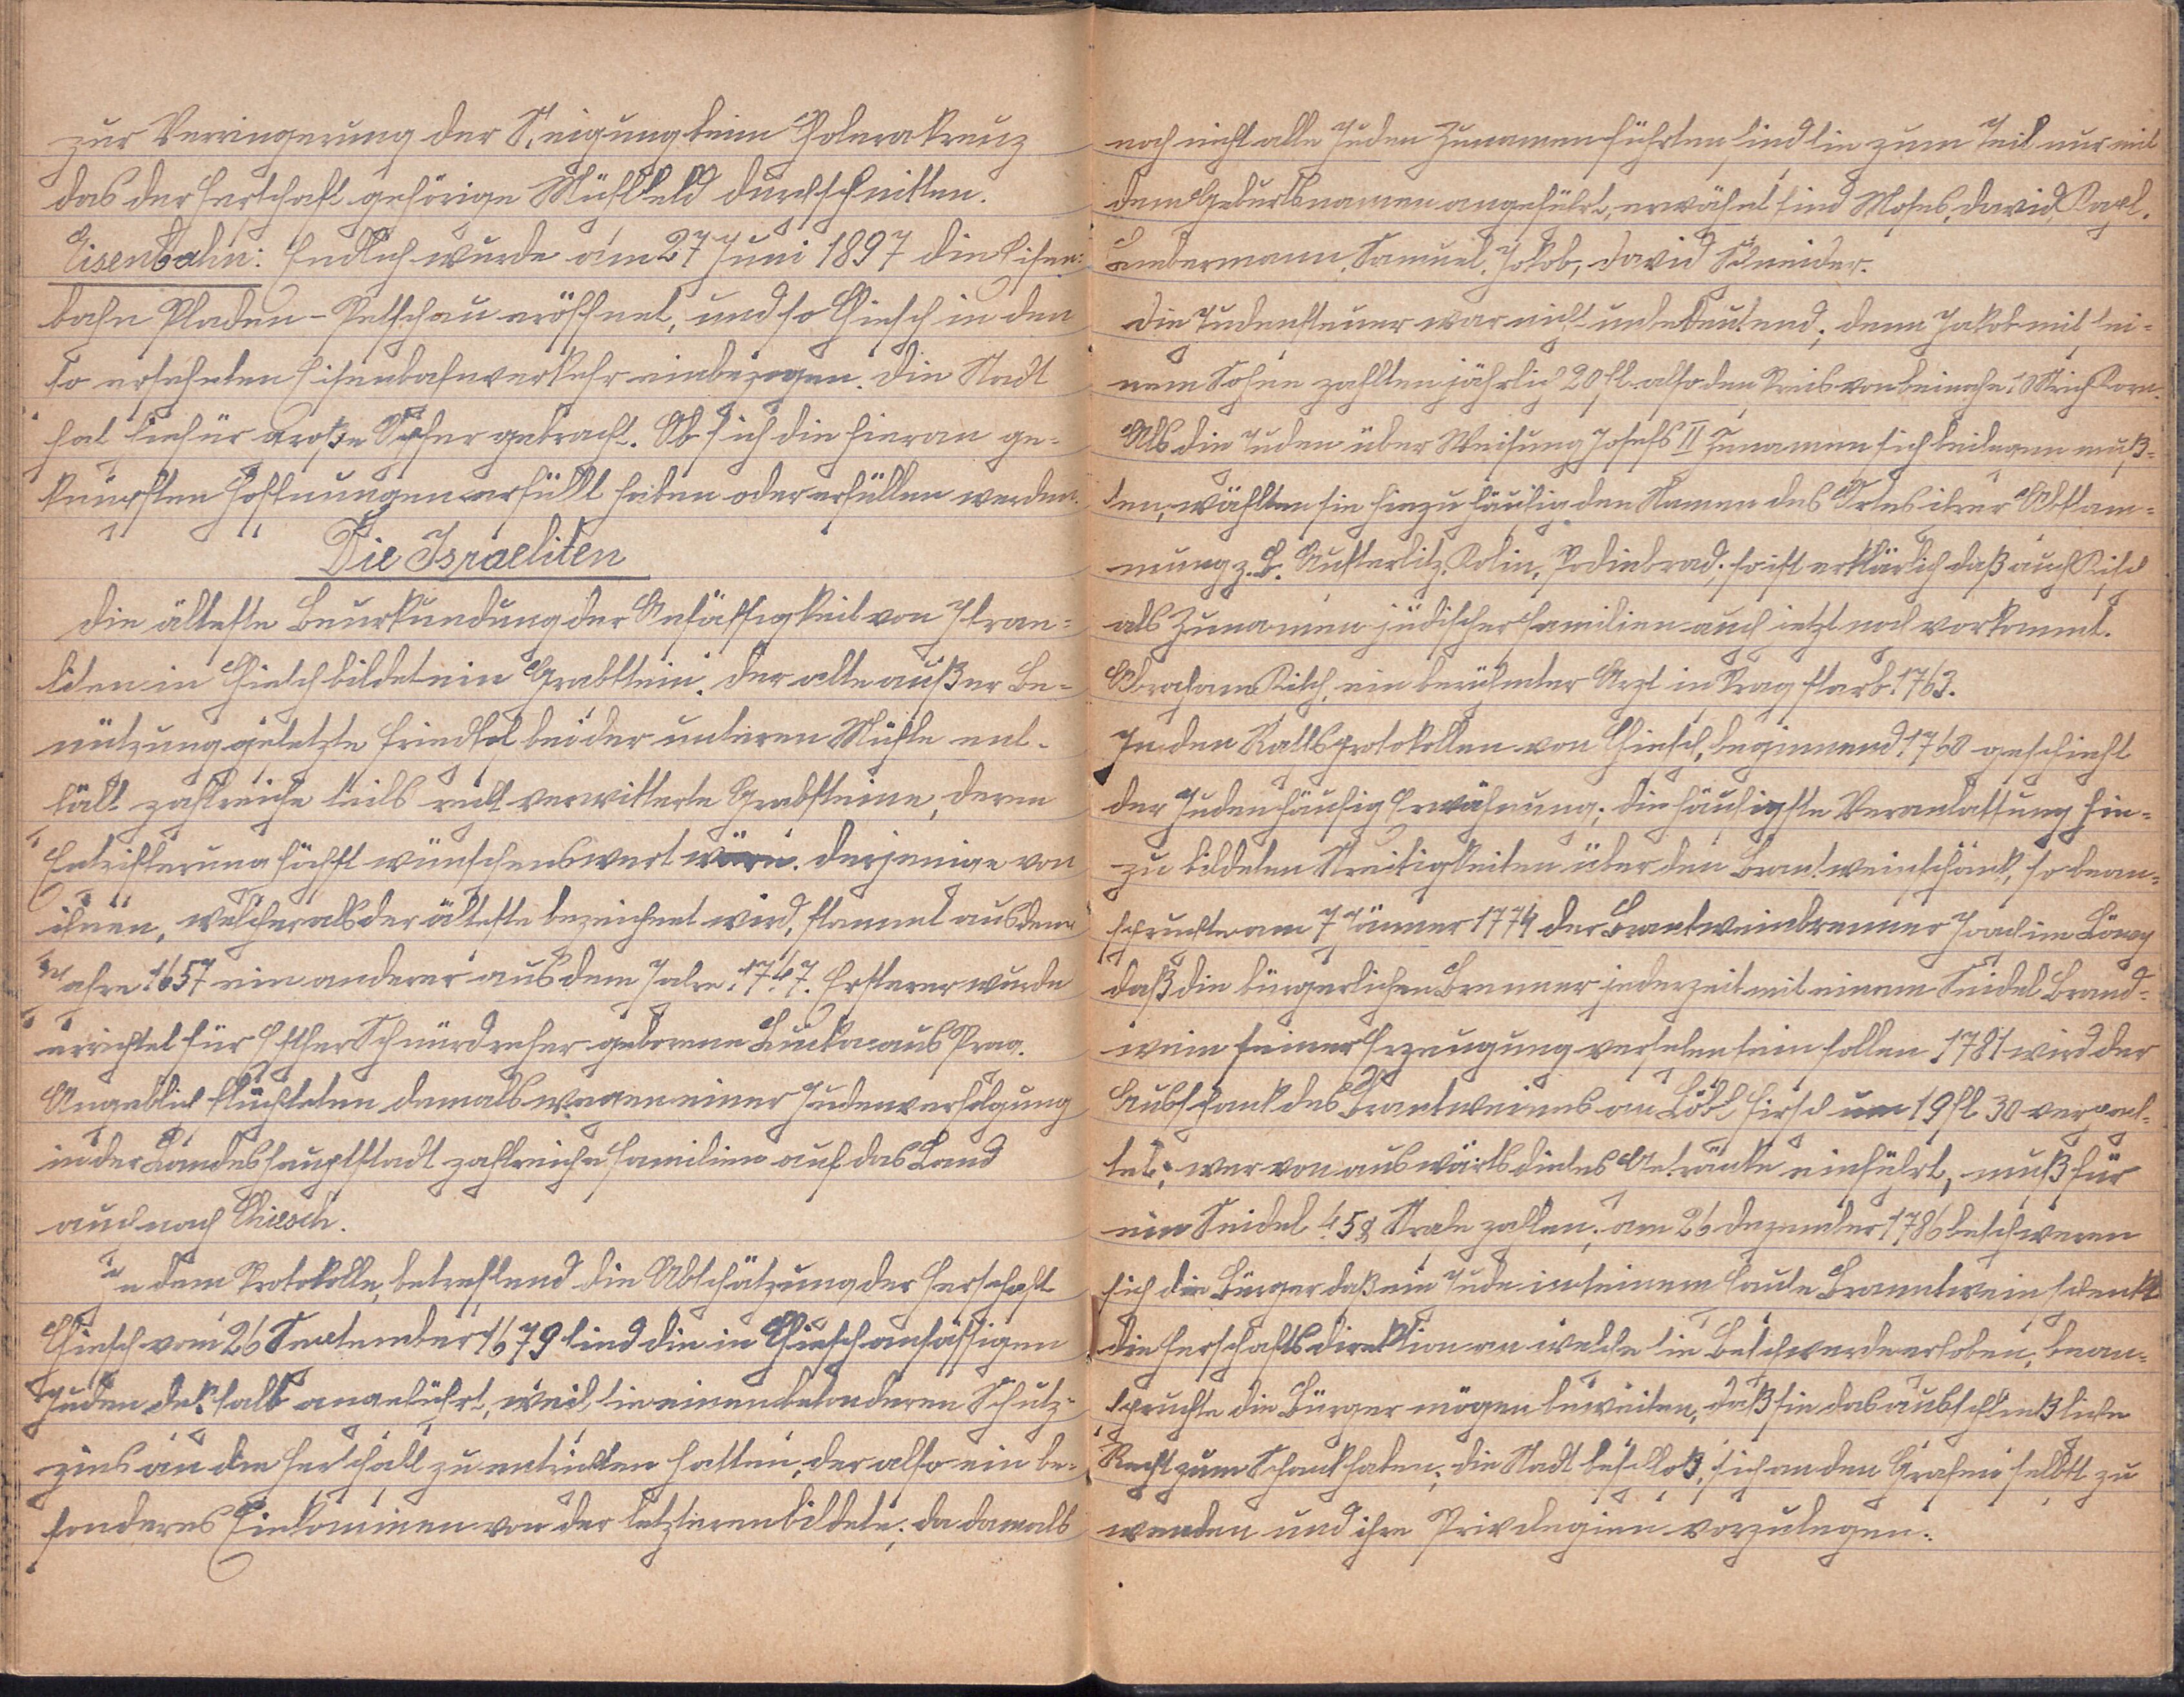 zur Verringerung der Steigung beim Cholerakreuz
das der Herschaft gehörige Mühlfeld durchschnitten.
Eisenbahn: Endlich wurde am 27 Juni 1897 die Eisen-
bahn Pladen - Petschau eröffnet, und so Chiesch in den
so ersehnten Eisenbahnverkehr einbezogen. Die Stadt
hat hiefür große Opfer gebracht. Ob sich die hieran ge-
knüpften Hoffnungen erfüllt haben oder erfüllen werden.
Die Israeliten
Die älteste Beurkundung der Ansässigkeit von Israe-
liten in Chiesch bildet ein Grabstein. Der alte außer Be-
nützung gesetzte Friedhof bei der unteren Mühle ent-
hält zahlreiche teils recht verwitterte Grabsteine, deren
Entzifferung höchst wünschenswert wäre. Derjenige von
ihnen, welcher als der älteste bezeichnet wird, stammt aus dem
Jahre 1657 ein anderer aus dem Jahre 1747. Ersterer wurde
errichtet für Esther Schnürdreher geborene Lucka aus Prag.
Angeblich flüchteten damals wegen einer Judenverfolgung
in der Landeshauptstadt zahlreiche Familien auf das Land
auch nach Chiesch.
In dem Protokolle, betreffend die Abschätzung der Herschaft
Chiesch vom 26 September 1679 sind die in Chiesch ansässigen
Juden deshalb angeführt, weil sie einen besonderen Schutz-
zins an die Herschaft zu entrichten hatten, der also ein be-
sonderes Einkommen von der letzteren bildete; da damals
noch nicht alle Juden Zunamen führten, sind sie zum Teil nur mit
dem Geburtsnamen angeführt, erwähnt sind Moses, David, Karl.
Lambermann, Samuel, Jakob, David Schneider.
Die Judensteuer war nicht unbedeutend; denn Jakob mit sei-
nem Sohne zahlten jährlich 20 fl. also den Preis von beinahe 1 Strich Korn.
Als die Juden über Weisung Josefs II Zunamen sich beilegen muß-
ten, wählten sie hiezu häufig den Namen des Ortes ihrer Abstam-
mung z. B. Austerlitz, Kolin, Podiebrad; so ist erklärlich daß auch Kisch
als Zunamen jüdischer Familien auch jetzt noch vorkommt.
Abraham Kisch, ein berühmter Arzt in Prag starb 1763.
In den Ratsprotokollen von Chiesch, beginnend 1760 geschieht
der Juden häufig Erwähnung; die häufigste Veranlassung hie-
zu bildeten Streitigkeiten über den Brantweinschank, so bean-
spruchte am 7 Jänner 1774 der Brantweinbrenner Joachim Löwy
daß die bürgerlichen Brenner jederzeit mit einem Seidel Brand-
wein seiner Erzeugung versehen sein sollen 1781 wird der
Ausschank des Brantweines an Löbl Hirsch um 19 fl 30 verpach-
tet; wer von auswärts dieses Getränke einführt, muß für
ein Seidel 45 Strafe zahlen; am 26 Dezember 1786 beschweren
sich die Bürger daß ein Jude in seinem Hause Branntwein schenkt
die Herschaftsdirektion an welche sie Beschwerde erhoben, bean-
spruchte die Bürger mögen beweisen, daß sie das ausschließliche
Recht zum Schank haben; die Stadt beschloß, sich an den Grafen selbst zu
wenden und ihre Privilegien vorzulegen.